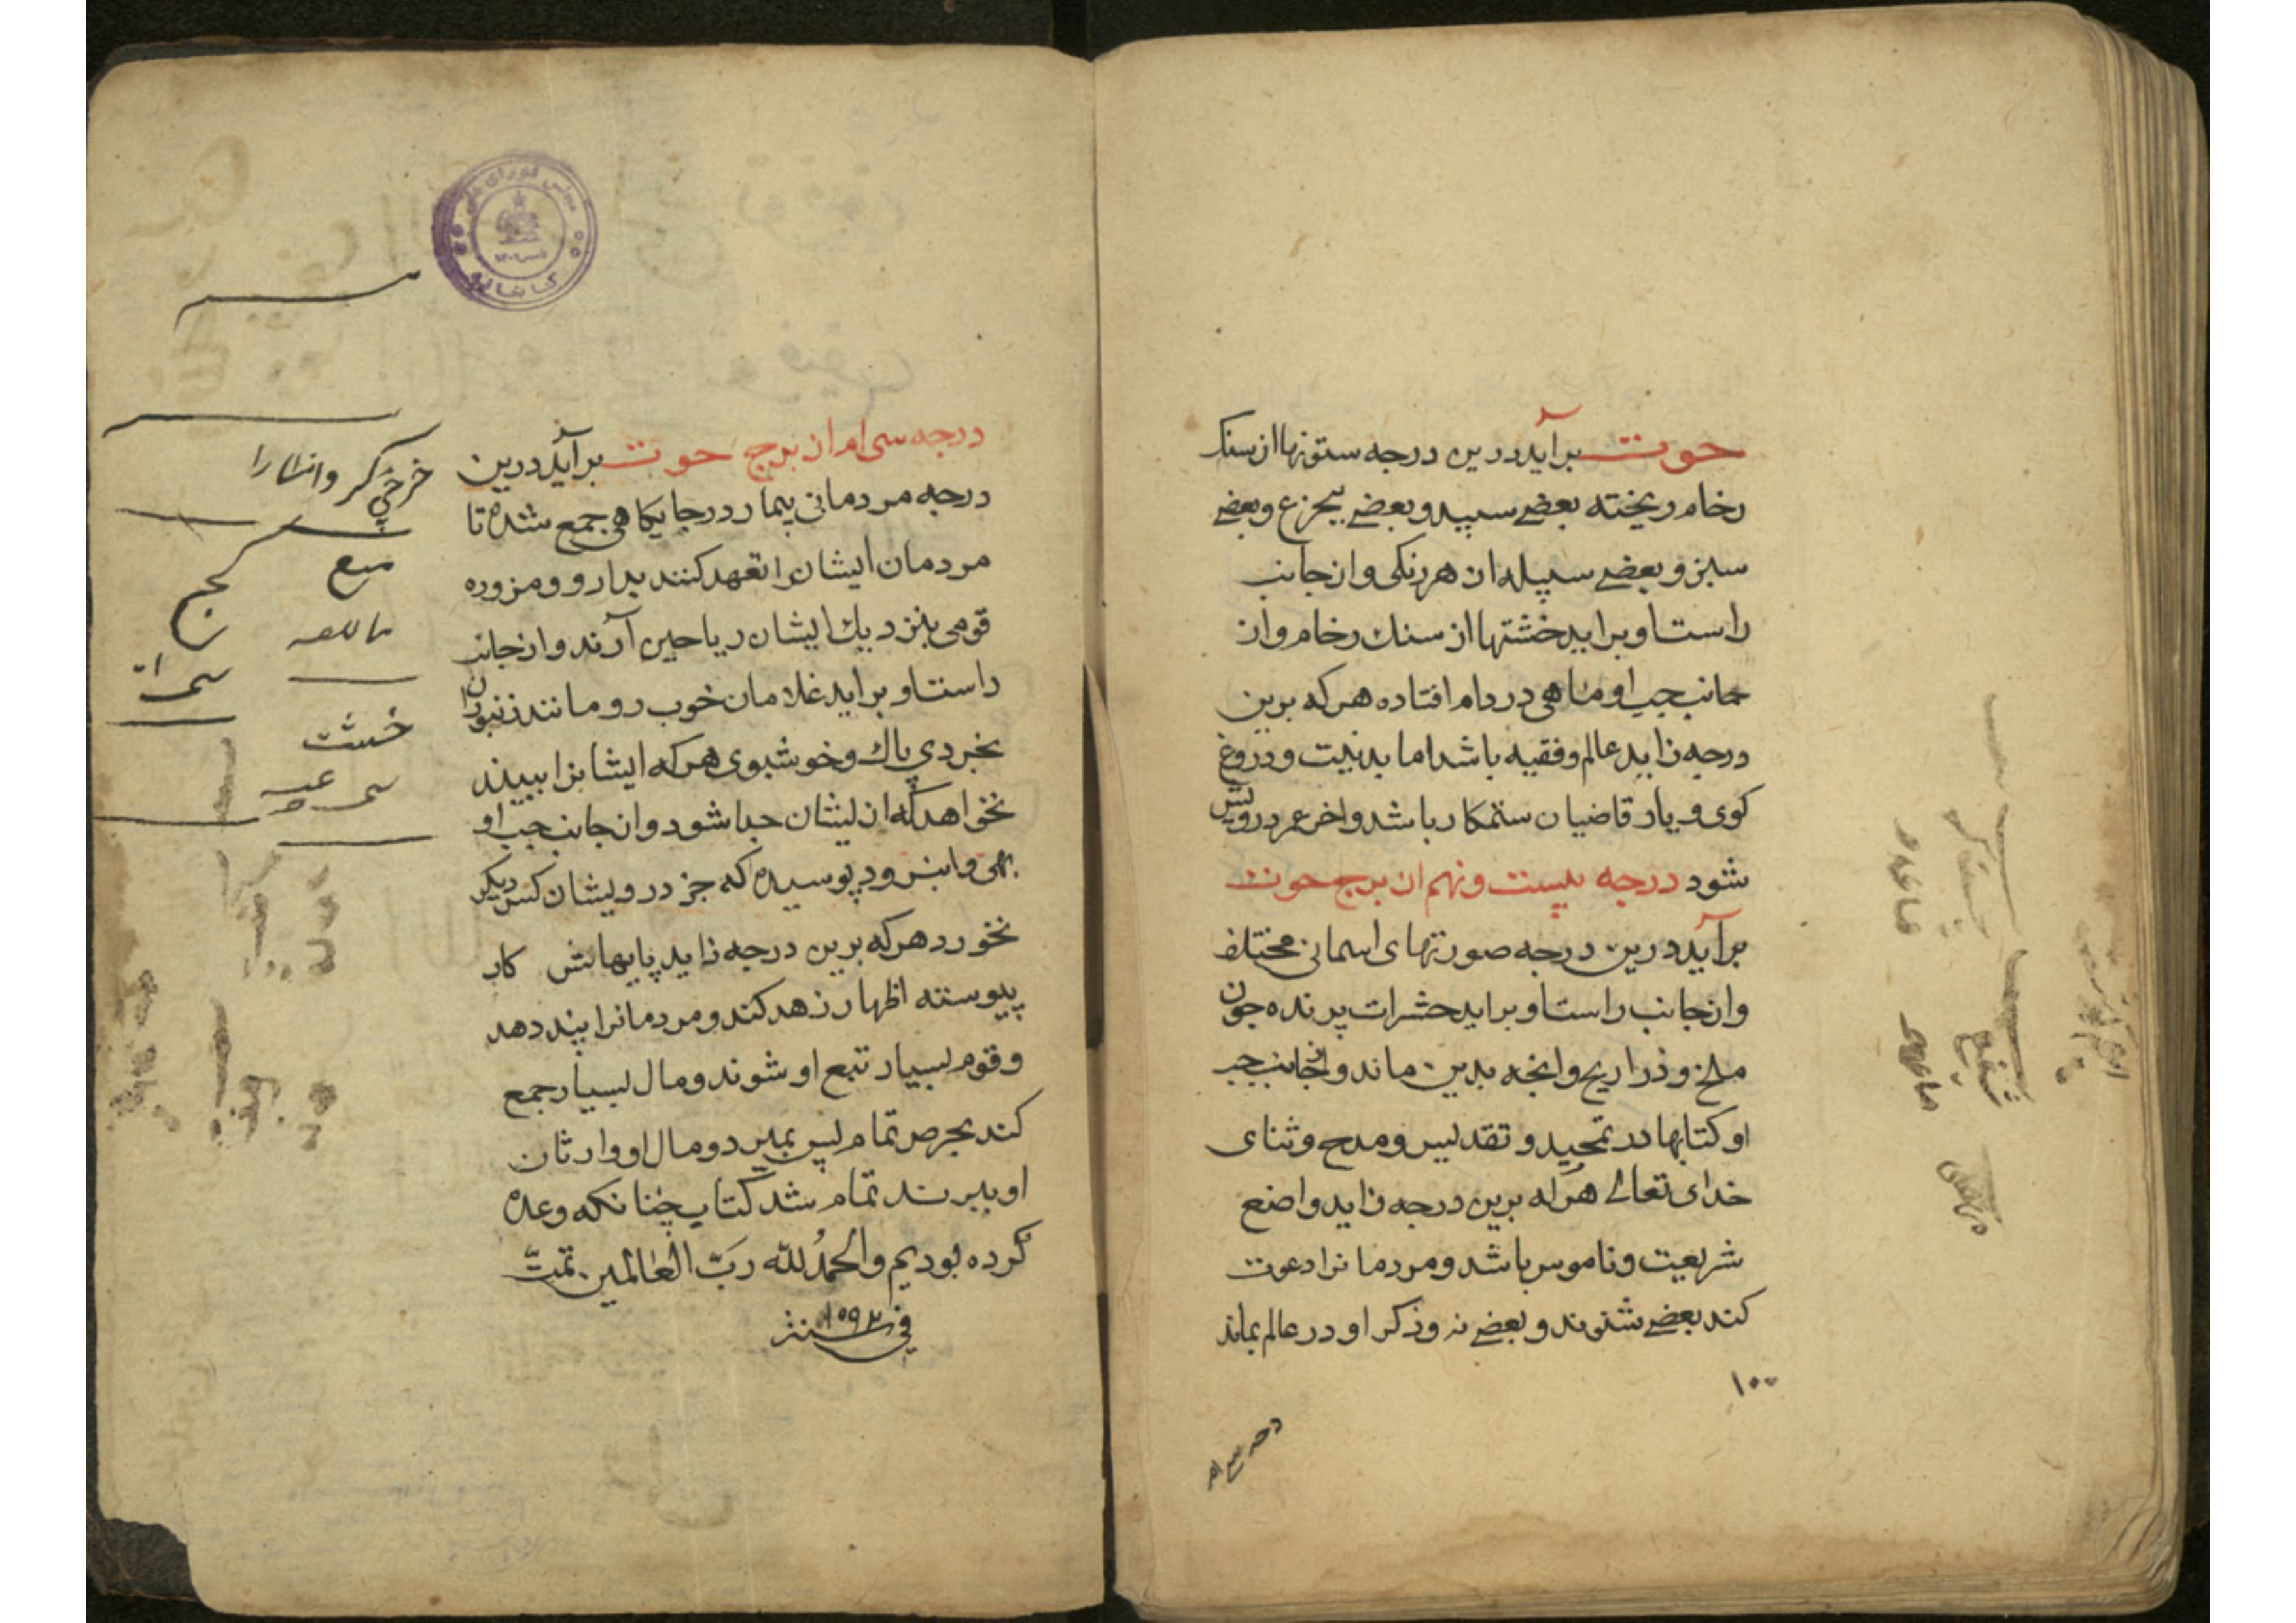 حوت برآید درین درجه ستونها از سنک
رخام ریخته بعضے سپید و بعضے بجزع و بعضے
سبز و بعضے سپیله از هر رنکی و از جانب
راست او براید خشتها از سنك رخام و از
جانب جپ او ماهی در دام افتاده هرکه برین
درجه زاید عالم و فقیه باشد اما بدنیت و دروغ
کوی و یار قاضیان ستمکار باشد و اخر عمر درویش
شود درجه بیست و نهم از برج حوت
برآید درین درجه صورتهای اسمانی مختلف
و از جانب راست او براید حشرات پرنده جون
ملخ و ذراریح و انچه بدین ماند و از جانب جپ
او کتابها در تمجید و تقدیس و مدح و ثنای
خدای تعالے هرکه برین درجه زاید واضع
شریعت و ناموس باشد و مردمانرا دعوت
کند بعضے شنوند و بعضے نه و ذکر او در عالم بماند
۱۰۰
درجه سی ام از برج حوت برآید درین
درجه مردمانی بیمار در جایکاهی جمع شده تا
مردمان ایشانرا تعهد کنند بدارو و مزوره
قومی بنزدیك ایشان ریاحین آرند و از جانب
راست او براید غلامان خوب رو مانند زنبوران
بخردی پاك و خوشبوی هرکه ایشانرا ببیند
نخواهد که از ایشان جدا شود و از جانب جپ او
بهی و انبرود پوسیده که جز درویشان کس دیکر
نخورد هرکه برین درجه زاید پایهاش کار
پیوسته اظهار زهد کند و مردمانرا پند دهد
و قوم بسیار تبع او شوند و مال بسیار جمع
کند بحرص تمام پس بمیرد و مال او وارثان
او ببرند تمام شد کتاب چنانکه وعده
کرده بودیم والحمدُ للّه ربّ العالمین تمّت
فی سنة ۱۰۹۲
خشت